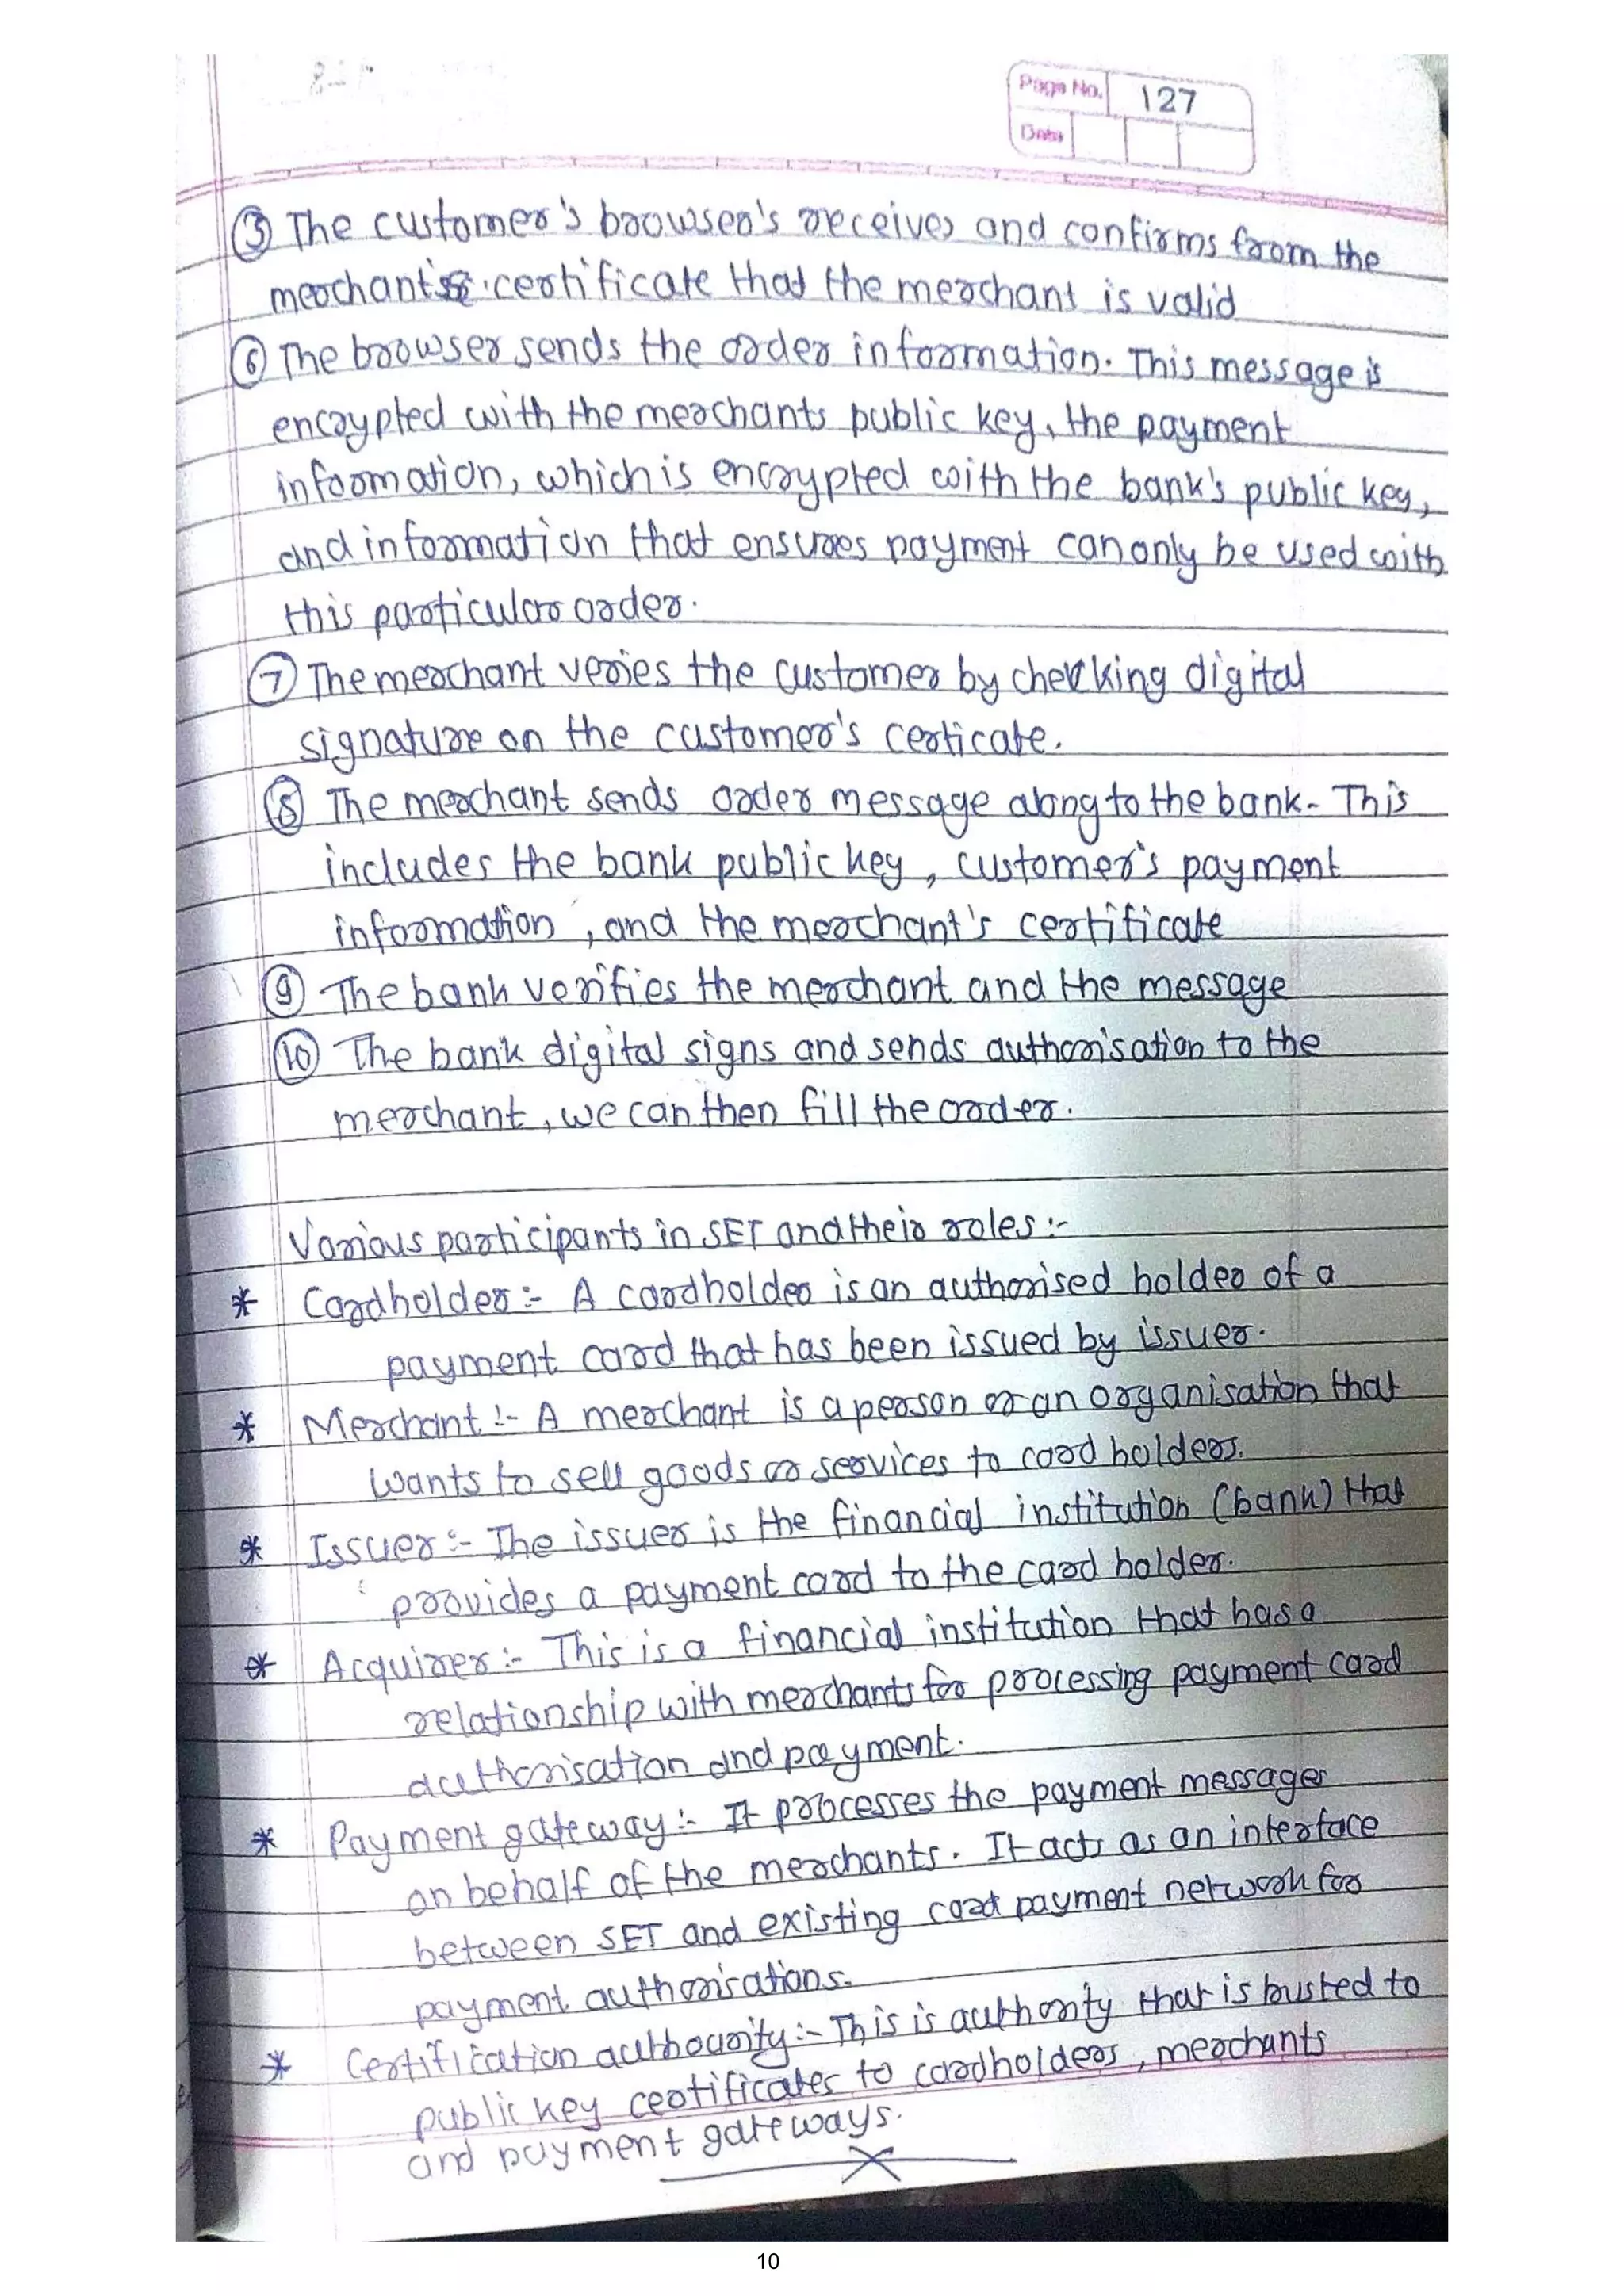 Page No. 127
Date
③ The customer's browser's receives and confirms from the
merchant's certificate that the merchant is valid
⑥ The browser sends the order information. This message is
encrypted with the merchants public key, the payment
information, which is encrypted with the bank's public key,
and information that ensures payment can only be used with
this particular order.
⑦ The merchant veries the customer by checking digital
signature on the customer's certicate.
⑧ The merchant sends order message along to the bank. This
includes the bank public key, customer's payment
information, and the merchant's certificate
⑨ The bank verifies the merchant and the message
⑩ The bank digital signs and sends authorisation to the
merchant, we can then fill the order.
Various participants in SET and their roles :-
* Cardholder :- A cardholder is an authorised holder of a
payment card that has been issued by issuer.
* Merchant :- A merchant is a person or an organisation that
wants to sell goods or services to card holders.
* Issuer :- The issuer is the financial institution (bank) that
provides a payment card to the card holder.
* Acquirer :- This is a financial institution that has a
relationship with merchants for processing payment card
authorisation and payment.
* Payment gateway :- It processes the payment messages
on behalf of the merchants. It acts as an interface
between SET and existing card payment network for
payment authorisations.
* Certification authourity :- This is authority that is trusted to
public key certificates to cardholders, merchants
and payment gateways.
10